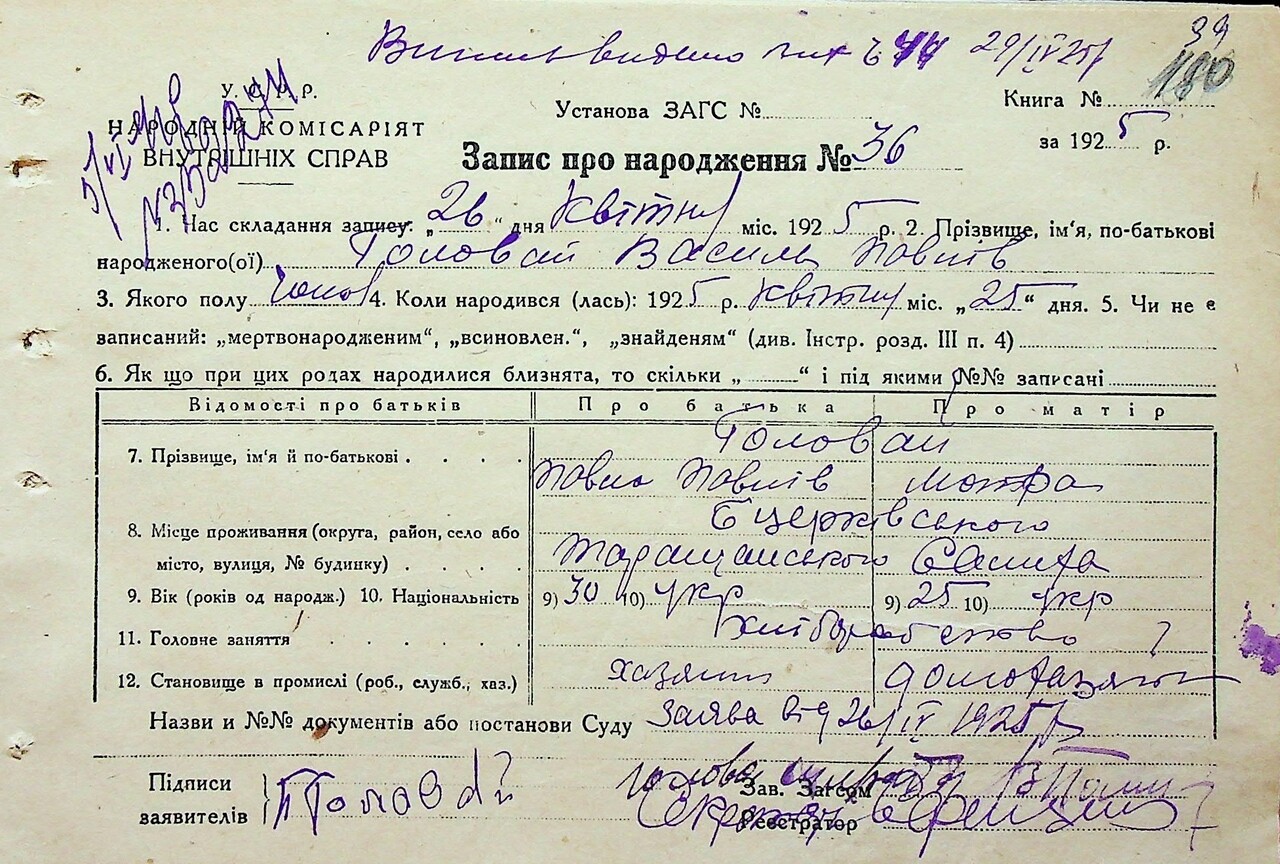 видано 44 29/IV 25
39
180
У.С.Р.Р.
НАРОДНІЙ КОМІСАРІЯТ
ВНУТРІШНІХ СПРАВ
Установа ЗАГС №
Книга №
за 1925 р.
Запис про народження № 36
1. Час складання запису: „26“ дня квітня міс. 1925 р. 2. Прізвище, ім'я, по-батькові
народженого(ої) Головай Василь Павлів
3. Якого полу чолов 4. Коли народився (лась): 1925 р. квітня міс. „25“ дня. 5. Чи не є
записаний: „мертвонародженим“, „всиновлен.“, „знайденям“ (див. Інстр. розд. III п. 4)
6. Як що при цих родах народилися близнята, то скільки „ “ і під якими №№ записані
Відомості про батьків Про батька Про матір
Головай
7. Прізвище, ім'я й по-батькові
Павло Павлів Мотря
Б церківського
8. Місце проживання (округа, район, село або
місто, вулиця, № будинку) Таращанського
9. Вік (років од народж.) 10. Національність 9) 30 10) укр 9) 25 10) укр
11. Головне заняття хліборобство
12. Становище в промислі (роб., служб., хаз.) хазяин
Назви и №№ документів або постанови Суду Заява від 26/IV 1925 р
Підписи
заявителів
голова
Зав. Загсом
Реєстратор